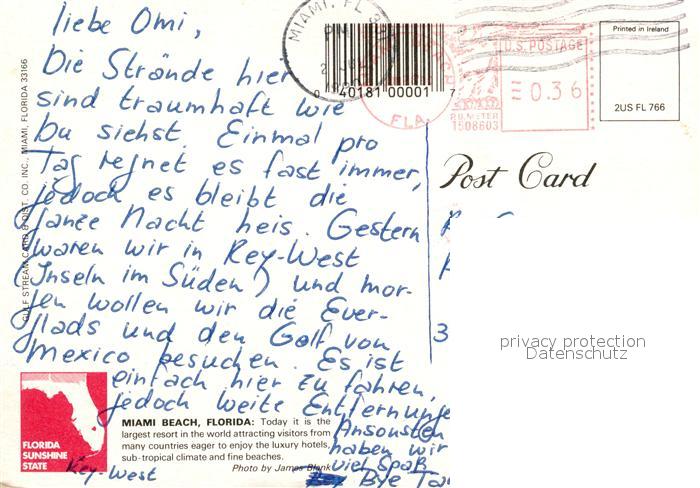 liebe Omi,
Die Strände hier
sind traumhaft wie
Du siehst. Einmal pro
Tag regnet es fast immer,
jedoch es bleibt die
ganze Nacht heis. Gestern
waren wir in Key-West
(Inseln im Süden) und mor-
gen wollen wir die Ever-
glads und den Golf von
Mexico besuchen. Es ist
einfach hier zu fahren,
jedoch weite Entfernunge
Ansonsten
haben wir
viel Spaß
Bye
Key-West
GULF STREAM CARD & DIST. CO. INC., MIAMI, FLORIDA 33166
FLORIDA
SUNSHINE
STATE
MIAMI BEACH, FLORIDA: Today it is the
largest resort in the world attracting visitors from
many countries eager to enjoy the luxury hotels,
sub-tropical climate and fine beaches.
Photo by James Blank
MIAMI, FL
PM
0 40181 00001 7
FLA.
U.S. POSTAGE
0.36
P.B. METER
1508603
Printed in Ireland
2US FL 766
Post Card
3
privacy protection
Datenschutz